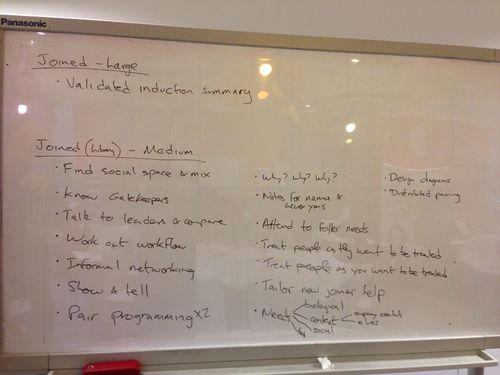 Panasonic
Joined - Large
· Validated induction summary
Joined () - Medium
· Find social space & mix
· Know Gatekeepers
· Talk to leaders & compare
· Work out workflow
· Informal networking
· Show & tell
· Pair programming x2
· Why? Why? Why?
· Notes for names &
· Attend to needs
· Treat people as they want to be treated
· Treat people as you want to be treated
· Tailor new joiner help
· Needs
biological
context
social
company
· Design diagrams
· Distributed pairing